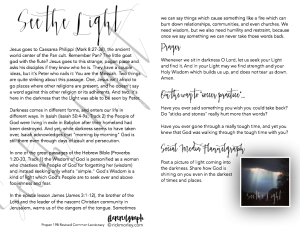 See the Light
Jesus goes to Caesarea Philippi (Mark 8:27-38), the ancient
world center of the Pan cult. Remember Pan? The little goat
god with the flute? Jesus goes to this strange, pagan place and
asks his disciples if they know who he is. They have a couple
ideas, but it's Peter who nails it: You are the Messiah. Two things
are quite striking about this passage. One, Jesus isn't afraid to
go places where other religions are present, and he doesn't say
a word against the other religion or its adherents. And two, it's
here in the darkness that the Light was able to be seen by Peter.
Darkness comes in different forms, and enters our life in
different ways. In Isaiah (Isaiah 50:4-9a, Track 2) the People of
God were living in exile in Babylon after their homeland had
been destroyed. And yet, while darkness seems to have taken
over, Isaiah acknowledges that "morning by morning" God is
still there even through days of upset and persecution.
In one of the great passages of the Hebrew Bible (Proverbs
1:20-33, Track 1) the Wisdom of God is personified as a woman
who chastises the People of God for forgetting her (wisdom)
and instead seeking only what's "simple." God's Wisdom is a
kind of light which God's People are to seek over and above
foolishness and fear.
In the epistle lesson James (James 3:1-12), the brother of the
Lord and the leader of the nascent Christian community in
Jerusalem, warns us of the dangers of the tongue. Sometimes
we can say things which cause something like a fire which can
burn down relationships, communities, and even churches. We
need wisdom, but we also need humility and restraint, because
once we say something we can never take those words back.
Prayer
Whenever we sit in darkness O Lord, let us seek your Light
and find it. And in your Light may we find strength and your
Holy Wisdom which builds us up, and does not tear us down.
Amen.
Have you ever said something you wish you could take back?
Do "sticks and stones" really hurt more than words?
Have you ever gone through a really tough time, and yet you
knew that God was walking through the tough time with you?
Social Media Flannelgraph
Post a picture of light coming into
the darkness. Share how God is
shining on you even in the darkest
of times and places.
flannelgraph
Proper 19B Revised Common Lectionary